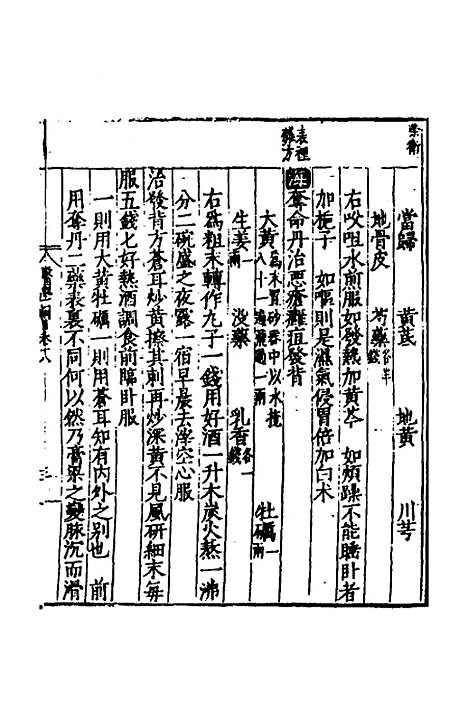 榮衛
當歸　黃芪　地黃　川芎
地骨皮　芍藥各半錢
右㕮咀水前服如發熱加黃芩　如煩躁不能睡卧者
加梔子　如嘔則是濕氣侵胃倍加白术
表裡雜方
奪命丹治惡瘡癰疽發背
大黃　牡礪一兩
生姜一兩　沒藥　乳香各一錢
右爲粗末轉作九子一錢用好酒一升木炭火熬一沸
分二碗盛之夜露一宿早晨去滓空心服
治發背方蒼耳炒黃擦其刺再炒深黃不見風研細末每
服五錢匕好熱酒調食前臨卧服
一則用大黃牡礪一則用蒼耳知有內外之別也　前
用奪丹二藥表裏不同何以然乃膏粱之變脉沉而滑